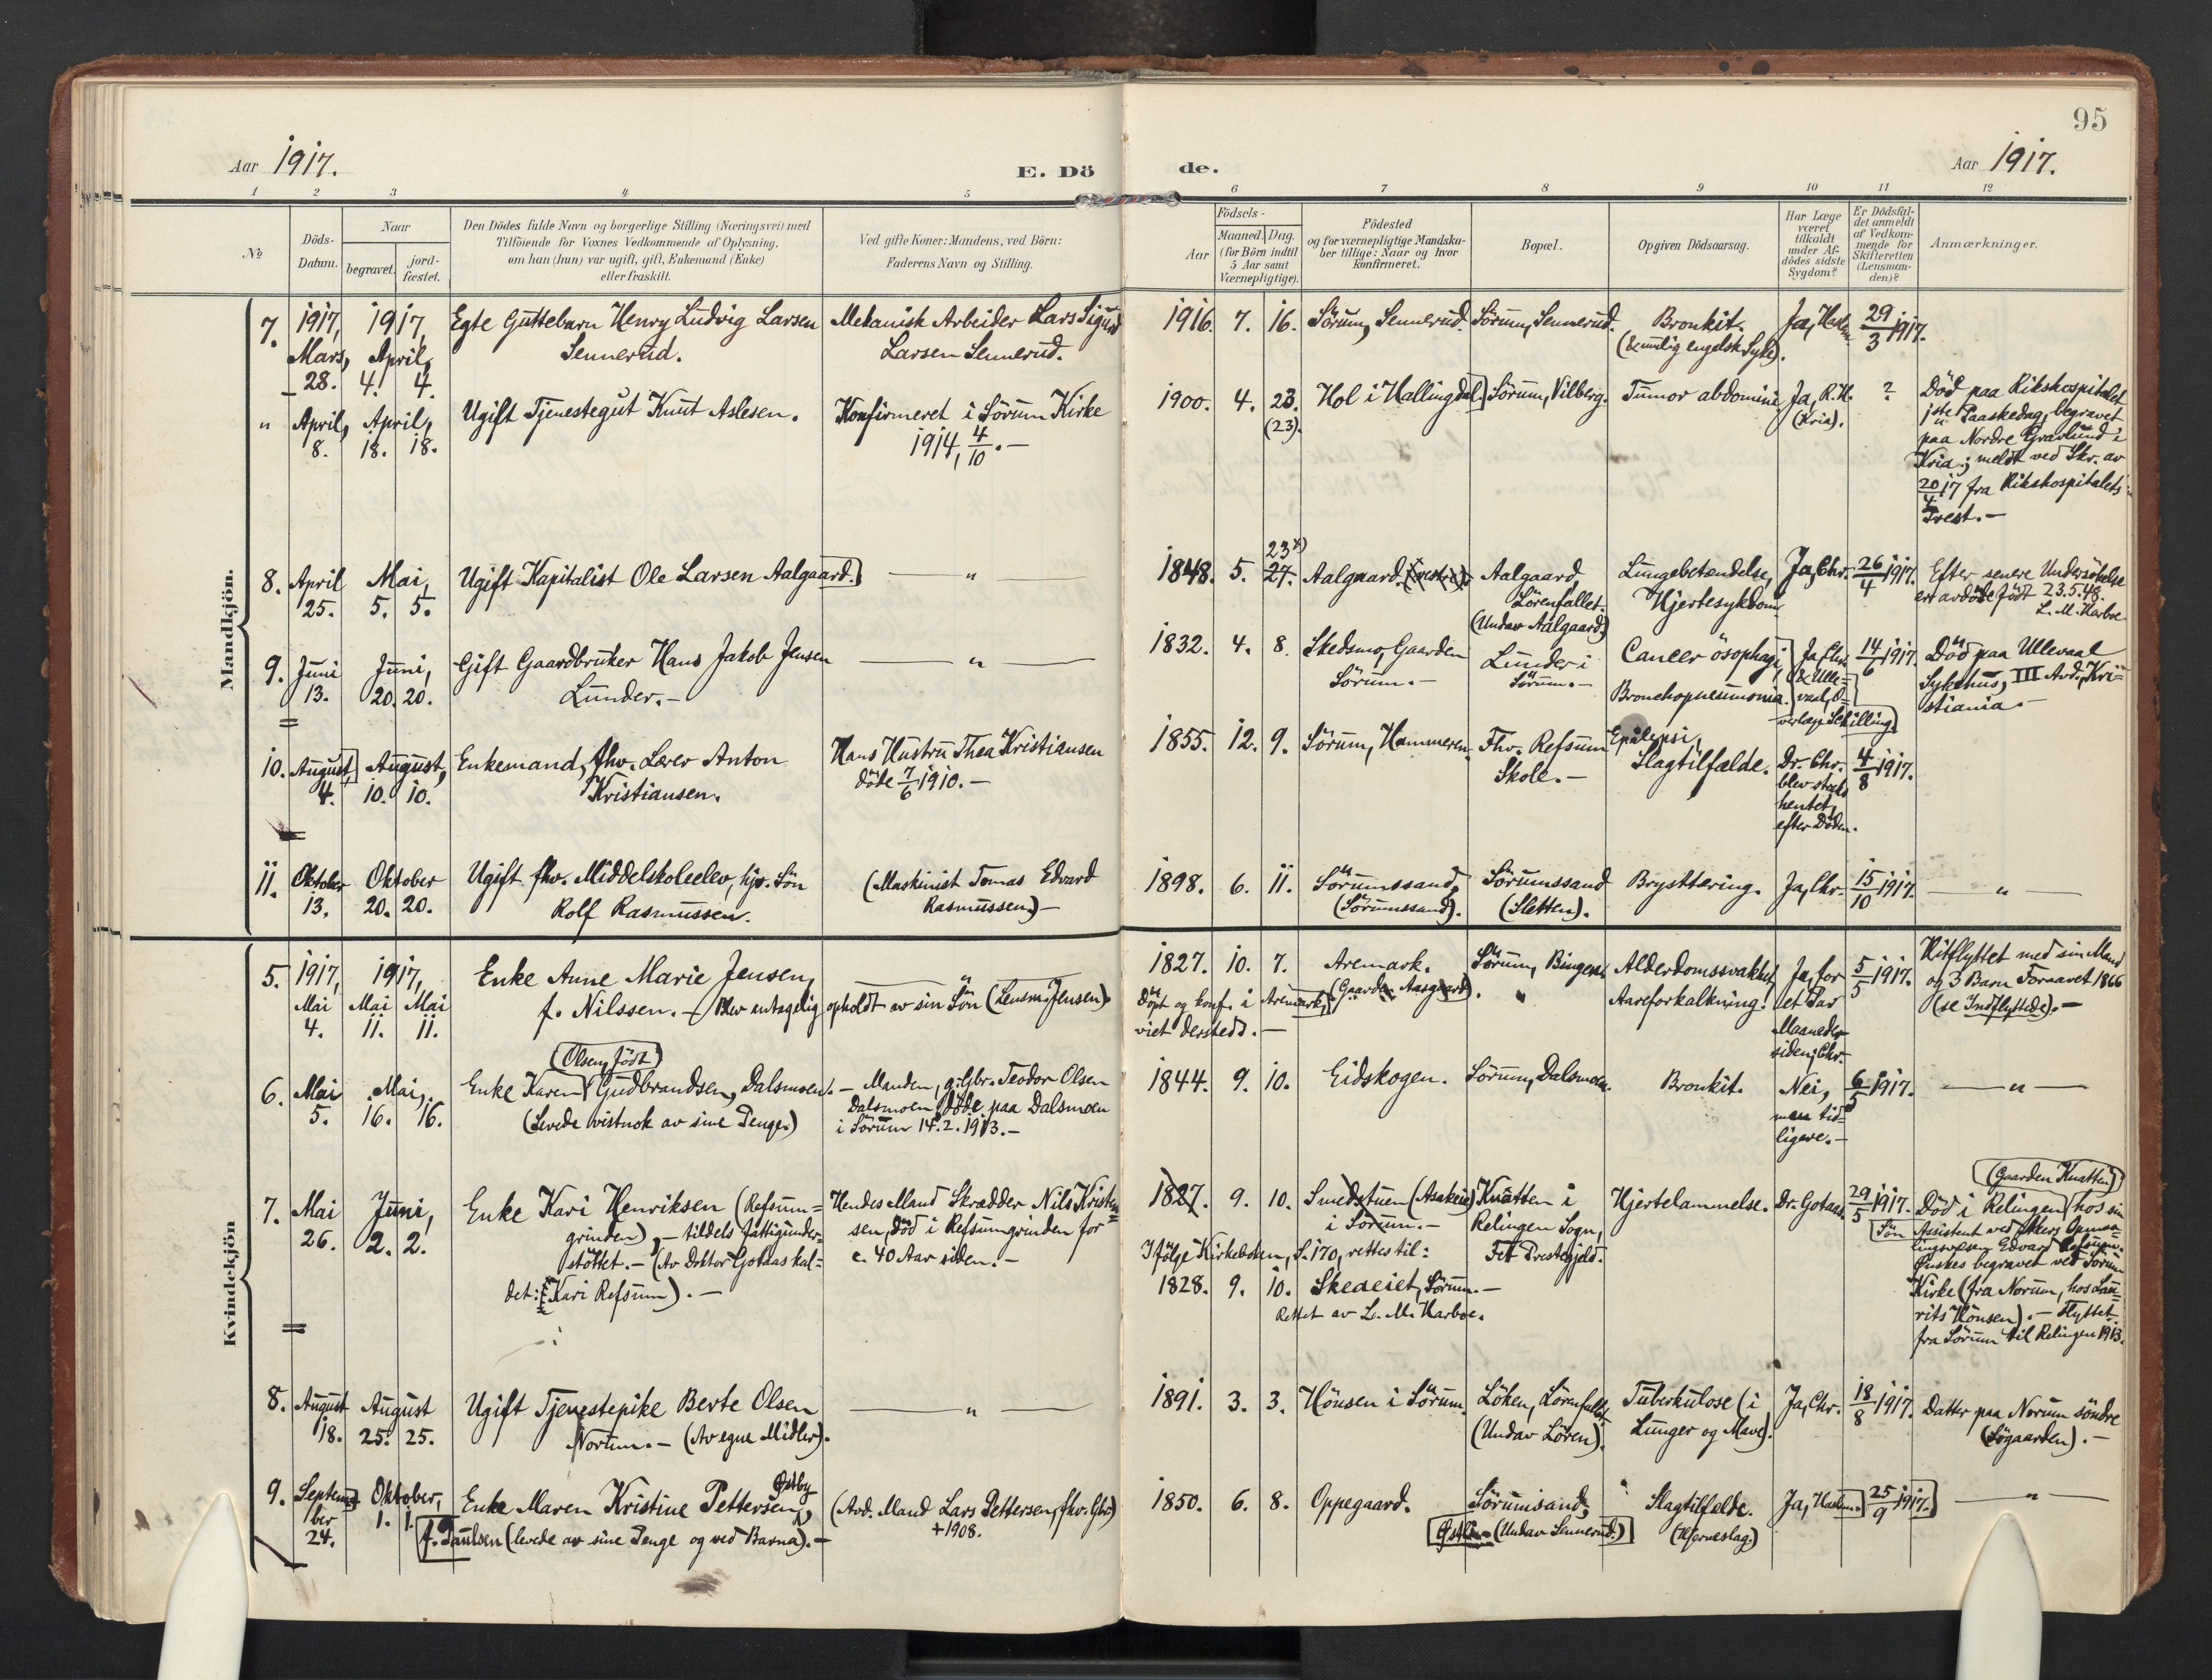 95
Aar 1917.
E. Dö
de.
Aar 1917.
1 2 3 4 5 6 7 8 9 10 11 12
No
Döds-
Datum.
Naar
begravet.
jord-
fæstet.
Den Dödes fulde Navn og borgerlige Stilling (Næringsvei) med
Tilföiende for Voxnes Vedkommende af Oplysning,
om han (hun) var ugift, gift, Enkemand (Enke)
eller fraskilt.
Ved gifte Koner: Mandens, ved Börn:
Faderens Navn og Stilling.
Födsels-
Aar
Maaned.
Dag.
(for Börn indtil
5 Aar samt
Værnepligtige).
Födested
og for værnepligtige Mandska-
ber tillige: Naar og hvor
konfirmeret.
Bopæl.
Opgiven Dödsaarsag.
Har Læge
været
tilkaldt
under Af-
dödes sidste
Sygdom?
Er Dödsfal-
det anmeldt
af Vedkom-
mende for
Skifteretten
(Lensman-
den)?
Anmærkninger.
Mandkjön.
7.
1917,
Mars,
28.
1917,
April,
4. 4.
Egte Guttebarn Henry Ludvig Larsen
Sennerud.
Mekanisk Arbeider Lars Sigurd
Larsen Sennerud.
1916. 7. 16.
Sörum, Sennerud.
Sörum, Sennerud.
Bronkit.
engelsk Syke).
Ja,
29/3 1917.
"
April,
8.
April,
18. 18.
Ugift Tjenestegut Knut Aslesen.
Konfirmeret i Sörum Kirke
1914, 4/10. —
1900. 4. 23.
(23).
Hol i Hallingdal.
Sörum, Vilberg.
Tumor abdomine
Ja, R.H.
(Kria).
?
Död paa Rikshospitalet
1ste Paaskedag, begravet
paa Nordre Gravlund i
Kria; meldt ved Skr. av
20/4 17 fra Rikshospitalets
Prest. —
8.
April
25.
Mai,
5. 5.
Ugift Kapitalist Ole Larsen Aalgaard.
— " —
1848. 5. 23x)
27.
Aalgaard.
Aalgaard,
Lörenfallet.
(Undav Aalgaard)
Lungebetændelse,
Hjertesykdom
Ja, Chr.
26/4 1917.
Efter senere Undersökelse
er avdöde födt 23.5.48.
L. M. Harboe
9.
Juni
13.
Juni,
20. 20.
Gift Gaardbruker Hans Jakob Jensen
Lunder. —
— " —
1832. 4. 8.
Skedsmo, Gaarden
Sörum. —
Lunder i
Sörum. —
Cancer ösophagi,
Bronchopneumonia.
Ja, Chr.
& Ulle=
vaal, O=
verlæge Schilling
14/6 1917.
Död paa Ullevaal
Sykehus, III Avd., Kri=
stiania —
10.
August,
4.
August,
10. 10.
Enkemand, fhv. Lærer Anton
Kristiansen.
Hans Hustru Thea Kristiansen
döde 7/6 1910. —
1855. 12. 9.
Sörum, Hammeren.
Fhv. Refsum
Skole. —
Epilepsi,
Slagtilfælde.
Dr. Chr.
blev straks
hentet,
efter Döden.
4/8 1917.
11.
Oktober
13.
Oktober
20. 20.
Ugift fhv. Middelskoleelev, hjv. Sön
Rolf Rasmussen.
(Maskinist Tomas Edvard
Rasmussen) —
1898. 6. 11.
Sörumssand,
(Sörumssand).
Sörumssand
(Sletten).
Brysttæring.
Ja, Chr.
15/10 1917.
— " —
Kvindekjön
5.
1917,
Mai
4.
1917,
Mai Mai
11. 11.
Enke Anne Marie Jensen,
f. Nilssen. — (Blev antagelig opholdt av sin Sön (Lensm. Jensen).
— " —
1827. 10. 7.
Döpt og konf. i Aremark,
viet dersteds. —
Aremark.
(Gaarden Aasgaard).
Sörum, Bingen.
Alderdomssvakhet,
Aareforkalkning.
Ja, for
et Par
Maaneder
siden; Chr.
5/5 1917.
Hitflyttet med sin Mand
og 3 Barn Foraaret 1866
(se Indflyttede). —
6.
Mai
5.
Mai,
16. 16.
(Olsen, födt)
Enke Karen Gudbrandsen, Dalsmoen.
(Levede vistnok av sine Penge.)
— Manden, g. Gbr. Teodor Olsen
Dalsmoen döde paa Dalsmoen
i Sörum 14.2.1913. —
1844. 9. 10.
Eidskogen.
Sörum, Dalsmoen.
Bronkit.
Nei,
men tid=
ligere. —
6/5 1917.
— " —
7.
Mai
26.
Juni,
2. 2.
Enke Kari Henriksen (Refsum=
grinden), — tildels fattigunder=
stöttet. — (Av Doktor Gotaas kal=
det: Kari Refsum). —
Hendes Mand Skrædder Nils Kristen
sen, Död i Refsumgrinden for
c. 40 Aar siden. —
1827. 9. 10.
Smedstuen (Asakeie)
i Sörum. —
Ifölge Kirkeboken, S. 170, rettes til:
1828. 9. 10. Skeaeiet, Sörum. —
Rettet av L. M. Harboe.
Knatten i
Relingen Sogn,
Fet Prestegjeld.
Hjertelammelse.
Dr. Gotaas
29/5 1917.
(Gaarden Knatten)
Död i Relingen hos sin
Sön Assistent ved Akers Opmaa=
lingsvæsen Edvard Refsum.
Önskes begravet ved Sörum
Kirke (fra Norum, hos Lau=
rits Hönsen). — Flyttet
fra Sörum til Relingen 1913.
8.
August
18.
August
25. 25.
Ugift Tjenestepike Berte Olsen
Norum. — (Av egne Midler).
— " —
1891. 3. 3.
Hönsen i Sörum.
Löken, Lörenfallet
(Undav Lören).
Tuberkulose (i
Lunger og Mave).
Ja, Chr.
18/8 1917.
Datter paa Norum söndre
(Sögaarden). —
9.
Septem=
ber
24.
Oktober,
1. 1.
Østby
Enke Maren Kristine Pettersen,
f. Paulsen (levede av sine Penge og ved Barna). —
(Avd. Mand Lars Pettersen, fhv. Gbr.)
+ 1908.
1850. 6. 8.
Oppegaard.
Sörumsand,
(Undav Sennerud.)
Slagtilfælde.
(Hjerneslag.)
Ja,
25/9 1917.
— " —